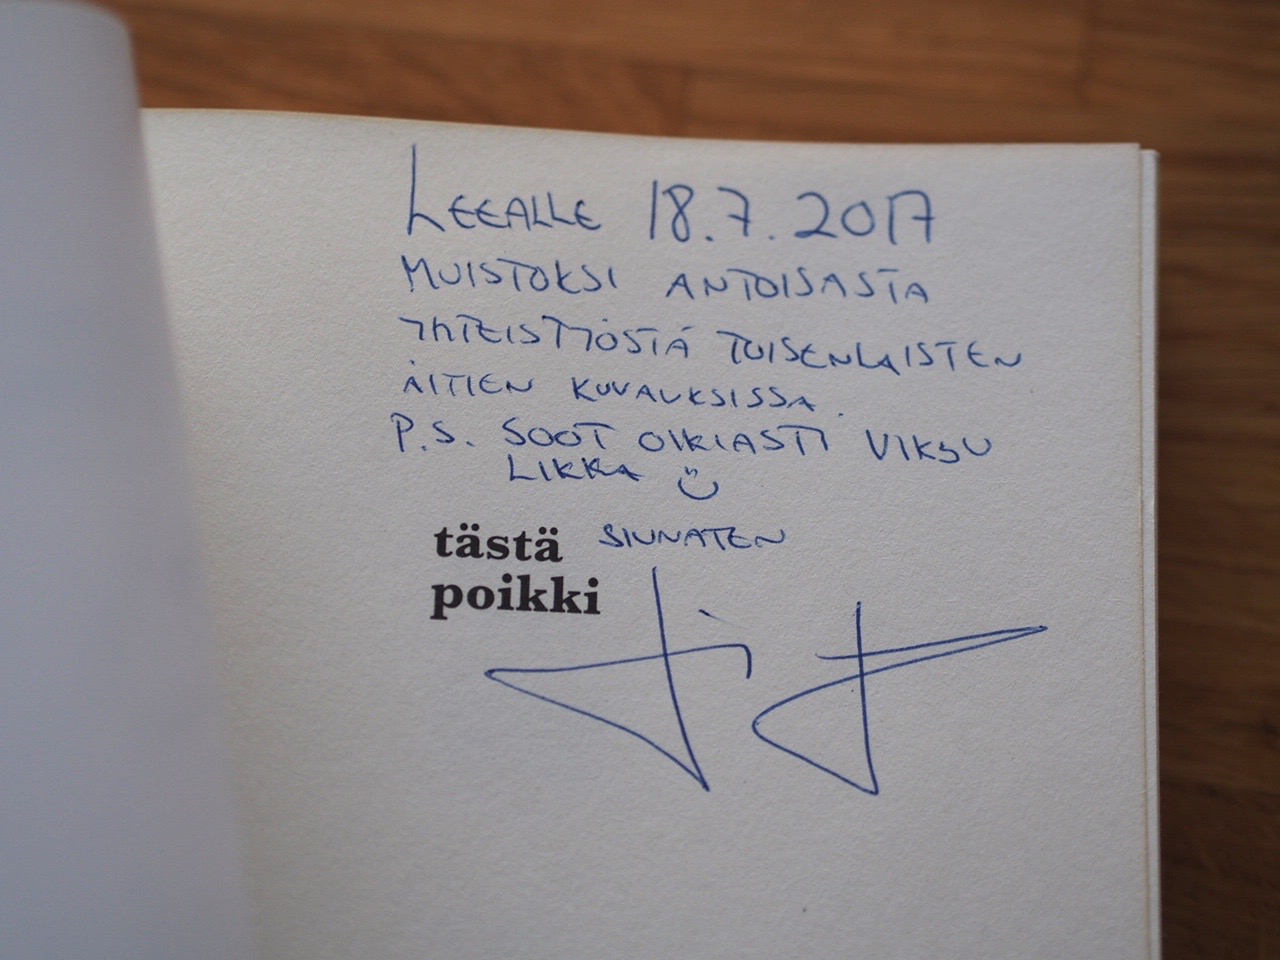 LEEALLE 18.7.2017
MUISTOKSI ANTOISASTA
YHTEISTYÖSTÄ TOISENLAISTEN
ÄITIEN KUVAUKSISSA.
P.S. SOOT OIKIASTI VIKSU
LIKKA ¨)
SIUNATEN
tästä
poikki